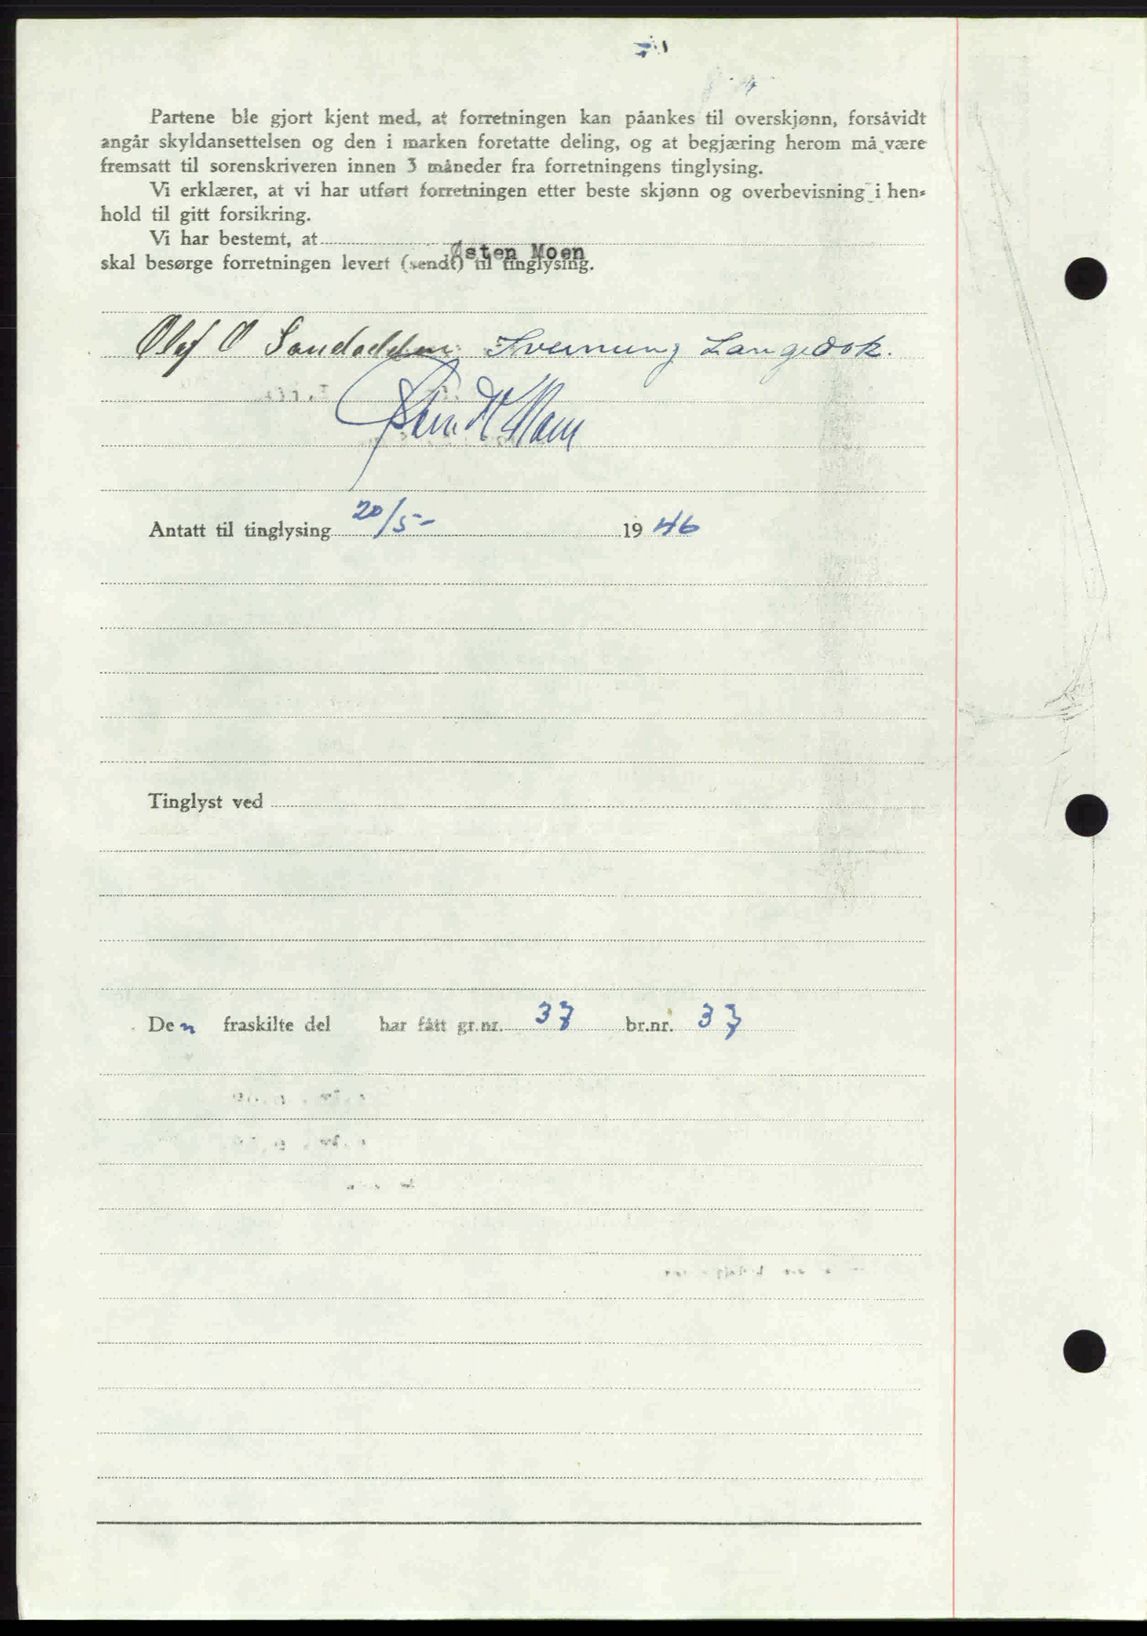 Partene ble gjort kjent med, at forretningen kan påankes til overskjønn, forsåvidt
angår skyldansettelsen og den i marken foretatte deling, og at begjæring herom må være
fremsatt til sorenskriveren innen 3 måneder fra forretningens tinglysing.
Vi erklærer, at vi har utført forretningen etter beste skjønn og overbevisning i hen-
hold til gitt forsikring.
Vi har bestemt, at
Østen Moen
skal besørge forretningen levert (sendt) til tinglysing.
Olaf O Sandodden. Sveinung Langedok.
Antatt til tinglysing 20/5- 1946
Tinglyst ved
Den fraskilte del har fått gr.nr. 37 br.nr. 37